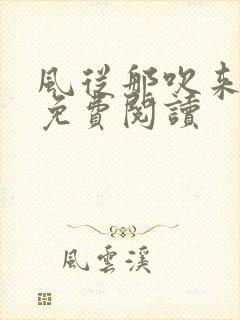 風從那吹来
免費閱讀
風雲溪